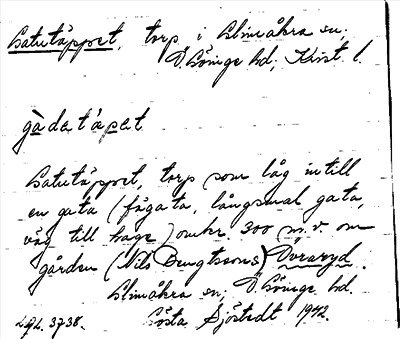 Gatutäppet, torp i Glimåkra sn;
Ö. Göinge hd; Krist. l.
gàdetápet
Gatutäppet, torp som låg intill
en gata (fägata, långsmal gata,
väg till hage) omkr. 300 m. v. om
gården (Nils Bengtssons) Öraryd.
Glimåkra sn; Ö. Göinge hd.
Lgl. 3738. Gösta Sjöstedt 1942.